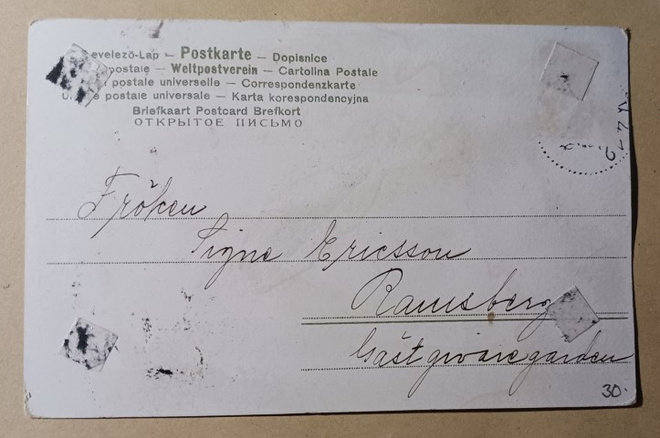 evelező-Lap – Postkarte – Dopisnice
postale – Weltpostverein – Cartolina Postale
postale universelle – Correspondenzkarte
postale universale – Karta korespondencyjna
Briefkaart Postcard Brefkort
ОТКРЫТОЕ ПИСЬМО
Fröken
Signe Ericsson
Ramsberg
Gästgivaregården
30.